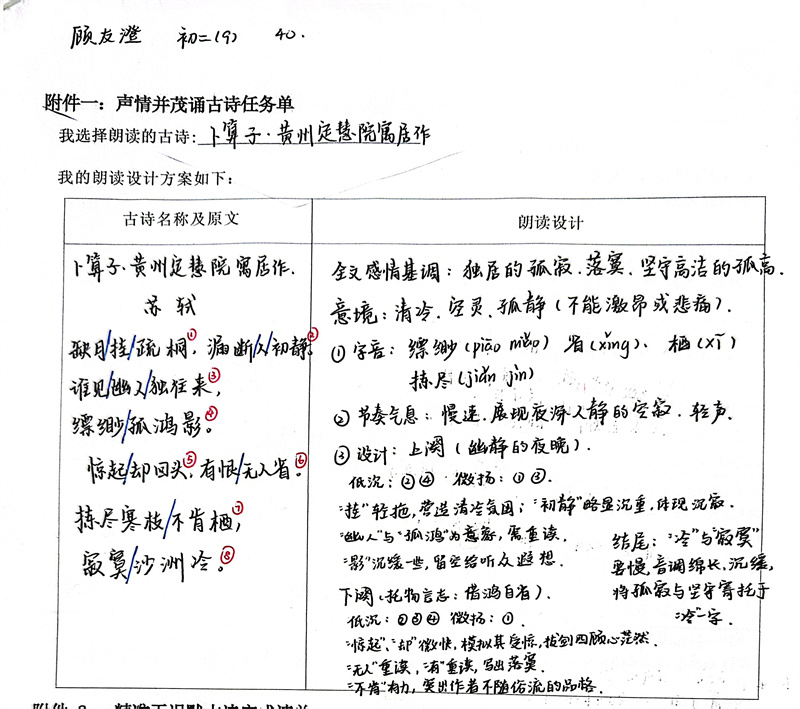 顾友澄 初二(9) 40.
附件一：声情并茂诵古诗任务单
我选择朗读的古诗：卜算子·黄州定慧院寓居作
我的朗读设计方案如下：
古诗名称及原文
卜算子·黄州定慧院寓居作.
苏轼
缺月/挂/疏桐①，漏断/人/初静②。
谁见/幽人/独往来③，
缥缈/孤鸿影。④
惊起/却回头⑤，有恨/无人省。⑥
拣尽寒枝/不肯栖⑦，
寂寞/沙洲冷。⑧
朗读设计
全文感情基调：独居的孤寂、落寞、坚守高洁的孤高.
意境：清冷、空灵、孤静(不能激昂或悲痛).
①字音：缥缈(piāo miǎo) 省(xǐng)、栖(xī)
拣尽(jiǎn jìn)
②节奏气息：慢速、展现夜深人静的空寂、轻声.
③设计：上阕(幽静的夜晚).
低沉：②④ 微扬：①③.
"挂"轻拖，营造清冷氛围；"初静"略显沉重，体现沉寂.
"幽人"与"孤鸿"为意象，需重读.
"影"沉缓一些，留空给听众遐想.
下阕(托物言志：借鸿自省).
低沉：②③④ 微扬：①.
"惊起"、"却"微快，模拟其受惊，拔剑四顾心茫然.
"无人"重读，"有"重读，写出落寞.
"不肯"有力，突出作者不随俗流的品格.
结尾："冷"与"寂寞"
要慢，音调绵长，沉缓，
将孤寂与坚守寄托于
"冷"一字.